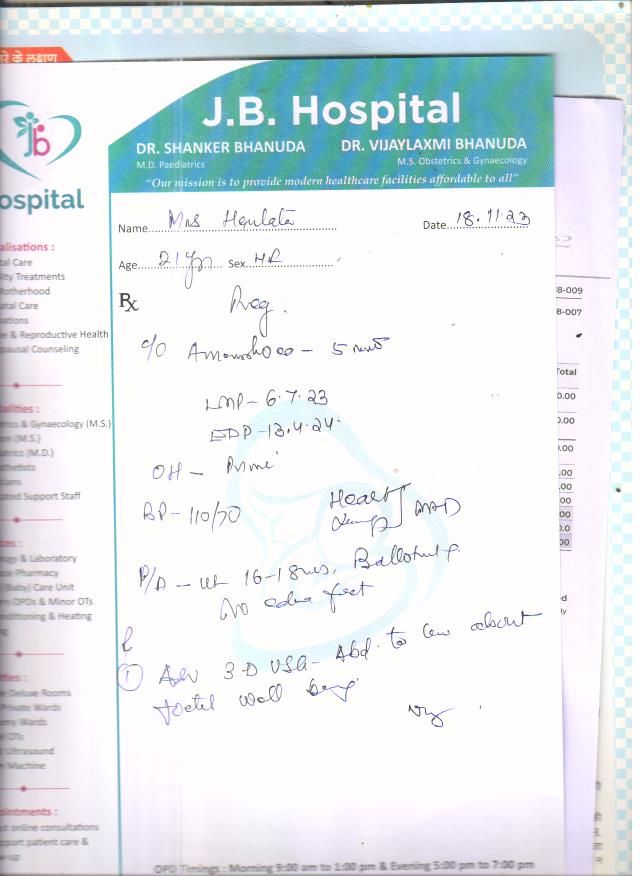 रे के लक्षण
J.B. Hospital
DR. SHANKER BHANUDA DR. VIJAYLAXMI BHANUDA
M.D. Paediatrics M.S. Obstetrics & Gynaecology
"Our mission is to provide modern healthcare facilities affordable to all"
Name Mrs Date 18.11.23
Age 21 yr Sex
Rx
Preg.
c/o - 5
LMP - 6.7.23
EDP - 13.4.24.
OH - Primi
BP - 110/70 Heart
Lungs NAD
P/A - ut 16-18
No feet
① Adv 3-D USG - Abd. to about
foetal well being
OPD Timings : Morning 9:00 am to 1:00 pm & Evening 5:00 pm to 7:00 pm
ospital
alisations :
tal Care
ility Treatments
Motherhood
atal Care
ations
e & Reproductive Health
pausal Counseling
alities :
rics & Gynaecology (M.S.)
on (M.S.)
atrics (M.D.)
thetists
cians
ated Support Staff
ogy & Laboratory
se Pharmacy
(Baby) Care Unit
rn OPDs & Minor OTs
nditioning & Heating
ties :
e Deluxe Rooms
Private Wards
my Wards
d OTs
Ultrasound
Machine
ointments :
t online consultations
pport patient care &
w-up
8-009
8-007
Total
0.00
0.00
.00
.00
.00
00
0.0
00